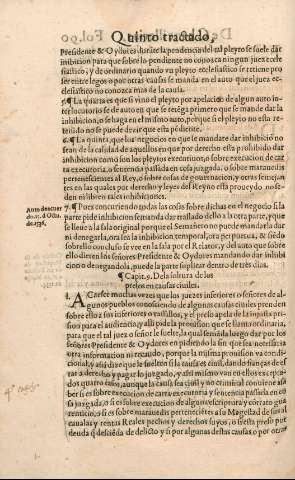 Quinto tractado,
Presidente & Oydores durãte la pendencia del tal pleyto se suele dar
inhibition para que sobre lo pendente no conozca ningun juez eccle
siastico, y de ordinario quando va pleyto ecclesiastico se retiene pro
ser entre legos o por otras causas se manda en el auto que el juez
ecclesiastico no conozca mas de la causa.
5. ¶ La quarta es que si vino el pleyto por apelacion de algun auto in-
terlocutorio se de auto en que se retega primero que se mande dar la
inhibicion, o se haga en el mismo auto, porque si el pleyto no esta re-
tenido no se puede dezir que esta pẽdiente.
6. ¶ La quinta, que los negocios en que se mandare dar inhibicion no
sean de la calidad de aquellos en que por derecho esta prohibido dar
inhibicion como son los pleytos executiuos, o sobre execucion de car
ta executoria, o sentencia passada en cosa juzgada, o sobre marauedis
pertenescientes al Rey, o sobre cosas de gouernacion, y otras semejan
tes en las quales por derecho y leyes del Reyno esta proueydo no se
den ni libren tales inhibiciones.
Auto de acuer
do. 11. d Otu.
de. 1536.
7. ¶ Pues concurriendo todas las cosas dichas en el negocio si la
parte pide inhibicion se manda dar traslado dello a la otra parte, y que
se lleue a la sala original porque el Semanero no puede mandarla dar
ni denegarla, ora sea la inhibicion temporal, ora perpetua, & lo dicho
sobrello concluso se vee en la sala por el Relator, y del auto que sobre
ello dieren los señores Presidente & Oydores mandando dar inhibi
cion o denegandola, puede la parte suplicar dentro de tres dias.
¶ Capit. 9. De la soltura de los
presos en causas ciuiles.
1. ACaesce muchas vezes que los juezes inferiores o señores de al-
gunos pueblos conosciendo de algunas causas ciuiles prenden
sobre ello a sus inferiores o vassallos, y el preso apela de la injusta pri-
sion para el audiencia, y alli pide la prouision que se llama ordinaria,
para que el tal juez o señor le suelte, la qual se mãda luego dar por los
señores Presidente & Oydores en pidiendola sin que sea necessaria
otra informacion ni recaudo, porque la misma prouision va condi-
cional, y assi dize que le suelten si la causa es ciuil, dando fianças de es-
tar a derecho y pagar lo juzgado, y assi mismo van en ella excepta-
dos quatro casos, aunque la causa sea ciuil y no criminal conuiene a sa
ber si es sobre execucion de carta executoria y sentencia passada en co
sa juzgada, o si es sobre execucion de alguna escriptura y contrato gua
renticio, o si es sobre marauedis pertenesciẽtes a su Magestad de sus al
caualas y rentas Reales pechos y derechos suyos, o si esta preso por
deuda q̃ desciẽda de delicto y si por algunas destas causas, o por otras